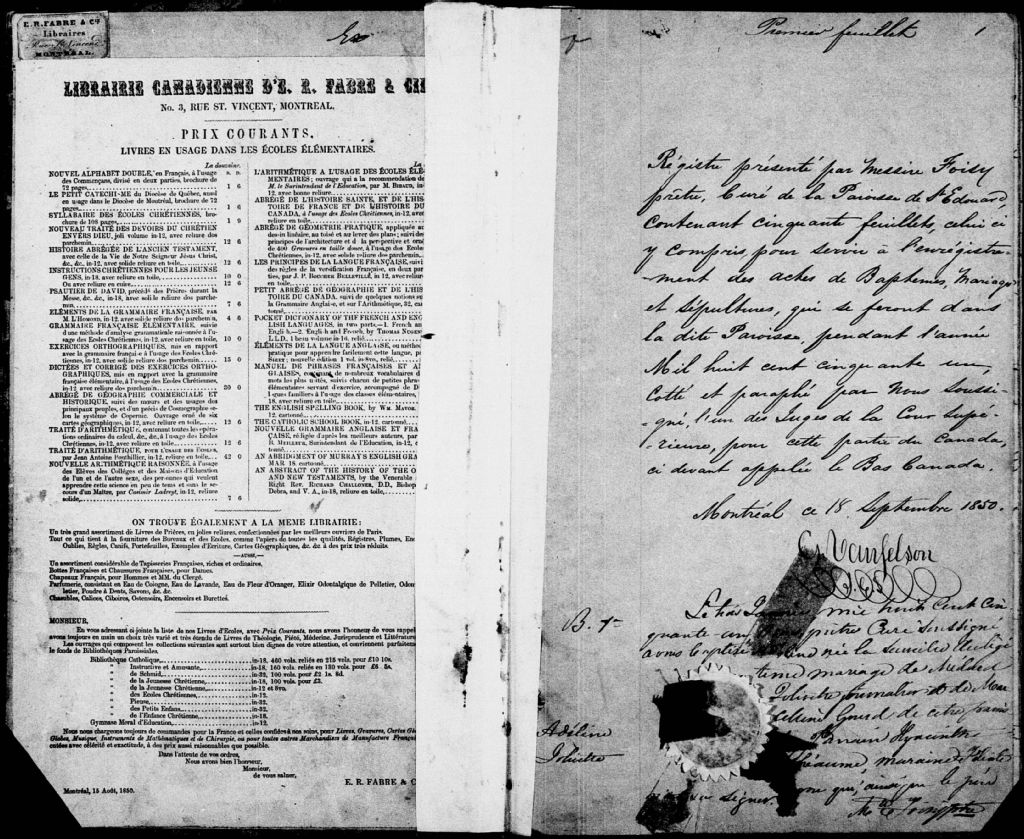 E. R. FABRE & Cie
Libraires
Rue St. Vincent
MONTRÉAL.
LIBRAIRIE CANADIENNE D'E. R. FABRE & CIE
No. 3, RUE ST. VINCENT, MONTREAL.
PRIX COURANTS.
LIVRES EN USAGE DANS LES ÉCOLES ÉLÉMENTAIRES.
La douzaine.
S. D.
NOUVEL ALPHABET DOUBLE, en Français, à l'usage
des Commençans, divisé en deux parties, brochure de
72 pages, 1 6
LE PETIT CATECHISME du Diocèse de Québec, aussi
en usage dans le Diocèse de Montréal, brochure de 72
pages, 1 6
SYLLABAIRE DES ÉCOLES CHRÉTIENNES, brochure de 108 pages, 1 9
NOUVEAU TRAITÉ DES DEVOIRS DU CHRÉTIEN
ENVERS DIEU, joli volume in-12, avec reliure dos
parchemin, 12 6
HISTOIRE ABRÉGÉE DE L'ANCIEN TESTAMENT,
avec celle de la Vie de Notre Seigneur Jésus Christ,
&c., &c., in-12, avec solide reliure en toile, 12 6
INSTRUCTIONS CHRÉTIENNES POUR LES JEUNES
GENS, in-18, avec reliure en toile, 10 0
Ou avec reliure en cuire, 12 6
PSAUTIER DE DAVID, précédé des Prières durant la
Messe, &c. &c., in-18, avec solide reliure dos parchemin, 7 6
ÉLÉMENTS DE LA GRAMMAIRE FRANÇAISE, PAR
M. L'HOMOND, in-12, avec solide reliure dos parchemin, 4 6
GRAMMAIRE FRANÇAISE ÉLÉMENTAIRE, suivie
d'une méthode d'analyse grammaticale raisonnée à l'usage des Ecoles Chrétiennes, in-12, avec reliure en toile, 10 0
EXERCICES ORTHOGRAPHIQUES, mis en rapport
avec la grammaire française à l'usage des Ecoles Chrétiennes, in-12, avec solide reliure dos parchemin, 15 0
DICTÉES ET CORRIGÉ DES EXERCICES ORTHOGRAPHIQUES, mis en rapport avec la grammaire
française élémentaire, à l'usage des Ecoles Chrétiennes,
in-12, avec reliure dos parchemin, 20 0
ABRÉGÉ DE GÉOGRAPHIE COMMERCIALE ET
HISTORIQUE, suivi des mœurs et des usages des
principaux peuples, et d'un précis de Cosmographie selon le système de Copernic. Ouvrage orné de six
cartes géographiques, in 12, avec reliure en toile, 12 6
TRAITÉ D'ARITHMÉTIQUE, contenant toutes les opérations ordinaires du calcul, &c., à l'usage des Ecoles
Chrétiennes, in-12, avec reliure en toile, 12 6
TRAITÉ D'ARITHMÉTIQUE, POUR L'USAGE DES ECOLES,
par Jean Antoine Bouthillier, en in-12, avec reliure en toile, 42 0
NOUVELLE ARITHMÉTIQUE RAISONNÉE, à l'usage
des Elèves des Collèges et des Maisons d'Education
de l'un et de l'autre sexe, des personnes qui veulent
apprendre cette science en peu de tems et sans le secours d'un Maître, par Casimir Ladreyt, in-12, reliure
solide, 7 6
L'ARITHMÉTIQUE A L'USAGE DES ÉCOLES ÉLÉMENTAIRES; ouvrage qui a la recommodation de
M. le Surintendant de l'Education, par M. BIBAUD, in-12, avec bonne reliure
ABRÉGÉ DE L'HISTOIRE SAINTE, ET DE L'HISTOIRE DE FRANCE ET DE L'HISTOIRE DU
CANADA, à l'usage des Ecoles Chrétiennes, in-12, avec
reliure en toile
ABRÉGÉ DE GÉOMÉTRIE PRATIQUE, appliquée au
dessin linéaire, au toisé et au lever des plans; suivi des
principes de l'architecture et de la perspective et orné
de 400 Gravures en taille douce, à l'usage des Ecoles
Chrétiennes, in-12, avec solide reliure dos parchemin.
LES PRINCIPES DE LA LANGUE FRANÇAISE, suivi
des règles de la versification Française, en deux parties, par J. P. BOUCHER BELLEVILLE, in 12, avec reliure
en toile
PETIT ABRÉGÉ DE GÉOGRAPHIE ET DE L'HISTOIRE DU CANADA, suivi de quelques notions sur
la Grammaire Anglaise, et sur l'Arithmétique, 32, cartonné,
POCKET DICTIONARY OF THE FRENCH AND ENGLISH LANGUAGES, in two parts,—1. French and
English.—2. English and French, by THOMAS NUGENT
L.L.D., 1 beau volume in 16, relié
ÉLÉMENTS DE LA LANGUE ANGLAISE, ou méthode
pratique pour apprendre facilement cette langue, par
SIRET; nouvelle édition 1 vol. in-8vo, relié,
MANUEL DE PHRASES FRANÇAISES ET ANGLAISES, contenant de nombreux vocabulaires de
mots les plus utiles, suivis chacun de petites phrases
élémentaires servant d'exercice, accompagné de Dialogues familiers à l'usage des classes élémentaires,
18, avec reliure en toile
THE ENGLISH SPELLING BOOK, by WM. MAVOR,
12, cartonné
THE CATHOLIC SCHOOL BOOK, in-12, cartonné
NOUVELLE GRAMMAIRE ANGLAISE ET FRANÇAISE, rédigée d'après les meilleurs auteurs, par
B. MEILLEUR, Surintendant de l'Education, in-12,
toile
AN ABRIDGMENT OF MURRAY'S ENGLISH GRAMMAR 18, cartonné
AN ABSTRACT OF THE HISTORY OF THE OLD
AND NEW TESTAMENTS, by the Venerable
Right Rev. RICHARD CHALLONER, D.D., Bishop
Debra, and V. A., in-18, reliure en toile
ON TROUVE ÉGALEMENT A LA MEME LIBRAIRIE:
Un très grand assortiment de Livres de Prières, en jolies reliures, confectionnées par les meilleurs ouvriers de Paris.
Tout ce qui tient à la fourniture des Bureaux et des Ecoles, comme Papiers de toutes les qualités, Régistres, Plumes, Encre
Oublies, Règles, Canifs, Portefeuilles, Exemples d'Ecriture, Cartes Géographiques, &c. &c à des prix très réduits.
—AUSSI,—
Un assortiment considérable de Tapisseries Françaises, riches et ordinaires.
Bottes Françaises et Chaussures Françaises, pour Dames.
Chapeaux Français, pour Hommes et MM. du Clergé.
Parfumerie, consistant en Eau de Cologne, Eau de Lavande, Eau de Fleur d'Oranger, Elixir Odontalgique de Pelletier, Odontletier, Poudre à Dents, Savons, &c. &c.
Chasubles, Calices, Ciboires, Ostensoirs, Encensoirs et Burettes.
MONSIEUR,
En vous adressant ci-jointe la liste de nos Livres d'Ecoles, avec Prix Courants, nous avons l'honneur de vous rappeler
avons toujours en main un choix très varié et très étendu de Livres de Théologie, Piété, Médecine, Jurisprudence et Littérature
Les ouvrages qui composent les collections suivantes sont surtout bien dignes de votre attention, et conviennent parfaitement
le fonds de Bibliothèques Paroissiales.
Bibliothèque Catholique, in-18, 460 vols. reliés en 215 vols. pour £10 10s.
" Instructive et Amusante, in-18, 160 vols. reliés en 130 vols. pour £6 5s.
" de Schmid, in-32, 100 vols. pour £2 1s. 8d.
" de la Jeunesse Chrétienne, in-18, 100 vols. pour £3.
" de la Jeunesse Chrétienne, in-12 et 8vo.
" des Ecoles Chrétiennes, in-12.
" Pieuse, in-32.
" des Petits Enfans, in-32.
" de l'Enfance Chrétienne, in-18.
Gymnase Moral d'Education, in-12.
Nous nous chargeons toujours de commandes pour la France et celles confiées à nos soins, pour Livres, Gravures, Cartes Géo
Globes, Musique, Instruments de Mathématiques et de Chirurgie, ou pour toutes autres Marchandises de Manufacture Française
cutées avec célérité et exactitude, à des prix aussi raisonnables que possible.
Dans l'attente de vos ordres,
Nous avons bien l'honneur,
Monsieur,
de vous saluer,
E. R. FABRE & C
Montréal, 15 Août, 1850.
Premier feuillet 1
Régistre présenté par Messire Foisy
prêtre, Curé de la Paroisse de St Edouard
contenant cinquante feuillets, celui ci
y compris, pour servir à l'enrégistre-
ment des actes de Baptêmes, Mariages
et sépultures, qui se feront dans
la dite Paroisse, pendant l'année
Mil huit cent cinquante un,
Cotté et paraphé par Nous soussi-
gné, l'un des Juges de la Cour Supé-
rieure, pour cette partie du Canada,
ci devant appellée le Bas Canada.
Montréal ce 18 Septembre 1850.
G. Vanfelson
J.C.S.
B. 1re
Adeline
Poluitre
Le trois Janvier mil huit cent cin
quante un prêtre Curé Soussigné
avons Baptisé née la surveille du légi
time mariage de
de cette paroisse
parrain Hyacinthe
marraine
qui, ainsi que le père
signer.